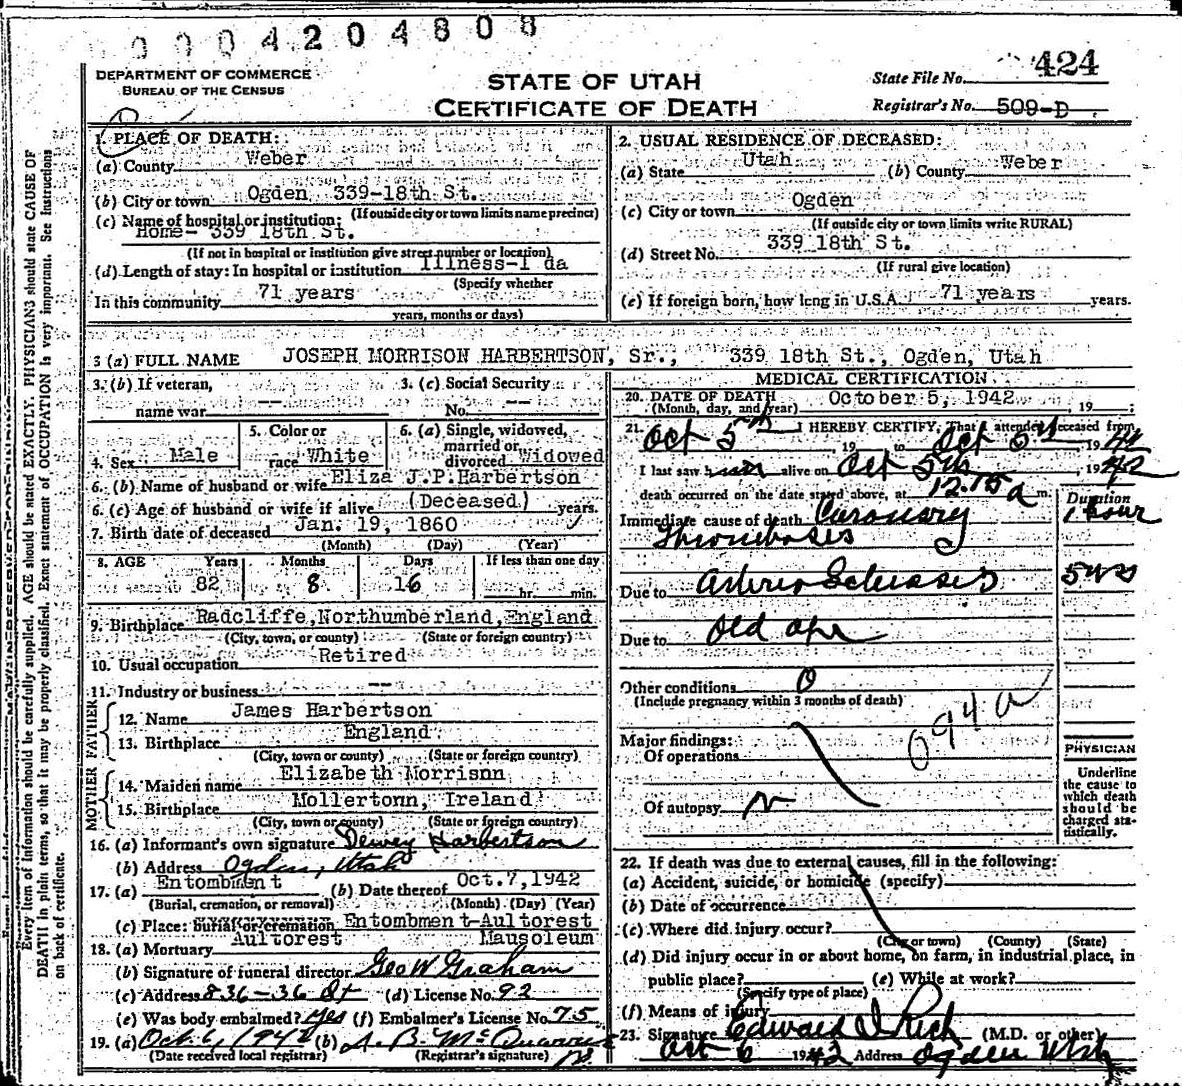 0004204808
DEPARTMENT OF COMMERCE
BUREAU OF THE CENSUS
STATE OF UTAH
CERTIFICATE OF DEATH
State File No. 424
Registrar's No. 509-D
1. PLACE OF DEATH:
(a) County Weber
(b) City or town Ogden 339-18th St.
(If outside city or town limits name precinct)
(c) Name of hospital or institution:
Home- 339 18th St.
(If not in hospital or institution give street number or location)
(d) Length of stay: In hospital or institution Illness-1 da
(Specify whether
In this community 71 years
years, months or days)
2. USUAL RESIDENCE OF DECEASED:
(a) State Utah (b) County Weber
(c) City or town Ogden
(If outside city or town limits write RURAL)
(d) Street No. 339 18th St.
(If rural give location)
(e) If foreign born, how long in U.S.A. 71 years years.
3 (a) FULL NAME JOSEPH MORRISON HARBERTSON, Sr., 339 18th St., Ogden, Utah
3. (b) If veteran,
name war --
3. (c) Social Security
No. --
4. Sex Male
5. Color or
race White
6. (a) Single, widowed,
married or
divorced Widowed
6. (b) Name of husband or wife Eliza J.P.Harbertson
6. (c) Age of husband or wife if alive (Deceased) years.
7. Birth date of deceased Jan. 19, 1860
(Month) (Day) (Year)
8. AGE Years Months Days If less than one day
82 8 16 hr. min.
9. Birthplace Radcliffe,Northumberland,England
(City, town, or county) (State or foreign country)
10. Usual occupation Retired
11. Industry or business --
FATHER
12. Name James Harbertson
13. Birthplace England
(City, town or county) (State or foreign country)
MOTHER
14. Maiden name Elizabeth Morrisnn
15. Birthplace Mollertonn, Ireland
(City, town or county) (State or foreign country)
16. (a) Informant's own signature Dewey Harbertson
(b) Address Ogden, Utah
17. (a) Entombment (b) Date thereof Oct.7,1942
(Burial, cremation, or removal) (Month) (Day) (Year)
(c) Place: burial or cremation Entombment-Aultorest
Mausoleum
18. (a) Mortuary Aultorest
(b) Signature of funeral director Geo W Graham
(c) Address 836-36 St (d) License No. 92
(e) Was body embalmed? Yes (f) Embalmer's License No. 75
19. (a) Oct. 6, 1942 (b)
(Date received local registrar) (Registrar's signature)
MEDICAL CERTIFICATION
20. DATE OF DEATH October 5, 1942, 19
(Month, day, and year)
21. I HEREBY CERTIFY, That I attended deceased from
Oct 5th 19 to Oct 5th 1942
I last saw him alive on Oct 5th, 1942
death occurred on the date stated above, at 12.15 a m.
Duration
Immediate cause of death Coronary 1 hour
Thrombosis
Due to Arterio Sclerosis 5 yrs
Due to Old age
Other conditions 0
(Include pregnancy within 3 months of death)
094a
Major findings:
Of operations
Of autopsy
PHYSICIAN
Underline
the cause to
which death
should be
charged sta-
tistically.
22. If death was due to external causes, fill in the following:
(a) Accident, suicide, or homicide (specify)
(b) Date of occurrence
(c) Where did injury occur?
(City or town) (County) (State)
(d) Did injury occur in or about home, on farm, in industrial place, in
public place? (e) While at work?
(Specify type of place)
(f) Means of injury
23. Signature Edward I Rich (M.D. or other)
Oct 6 1942 Address Ogden Utah
Every item of information should be carefully supplied. AGE should be stated EXACTLY. PHYSICIANS should state CAUSE OF
DEATH in plain terms, so that it may be properly classified. Exact statement of OCCUPATION is very important. See Instructions
on back of certificate.